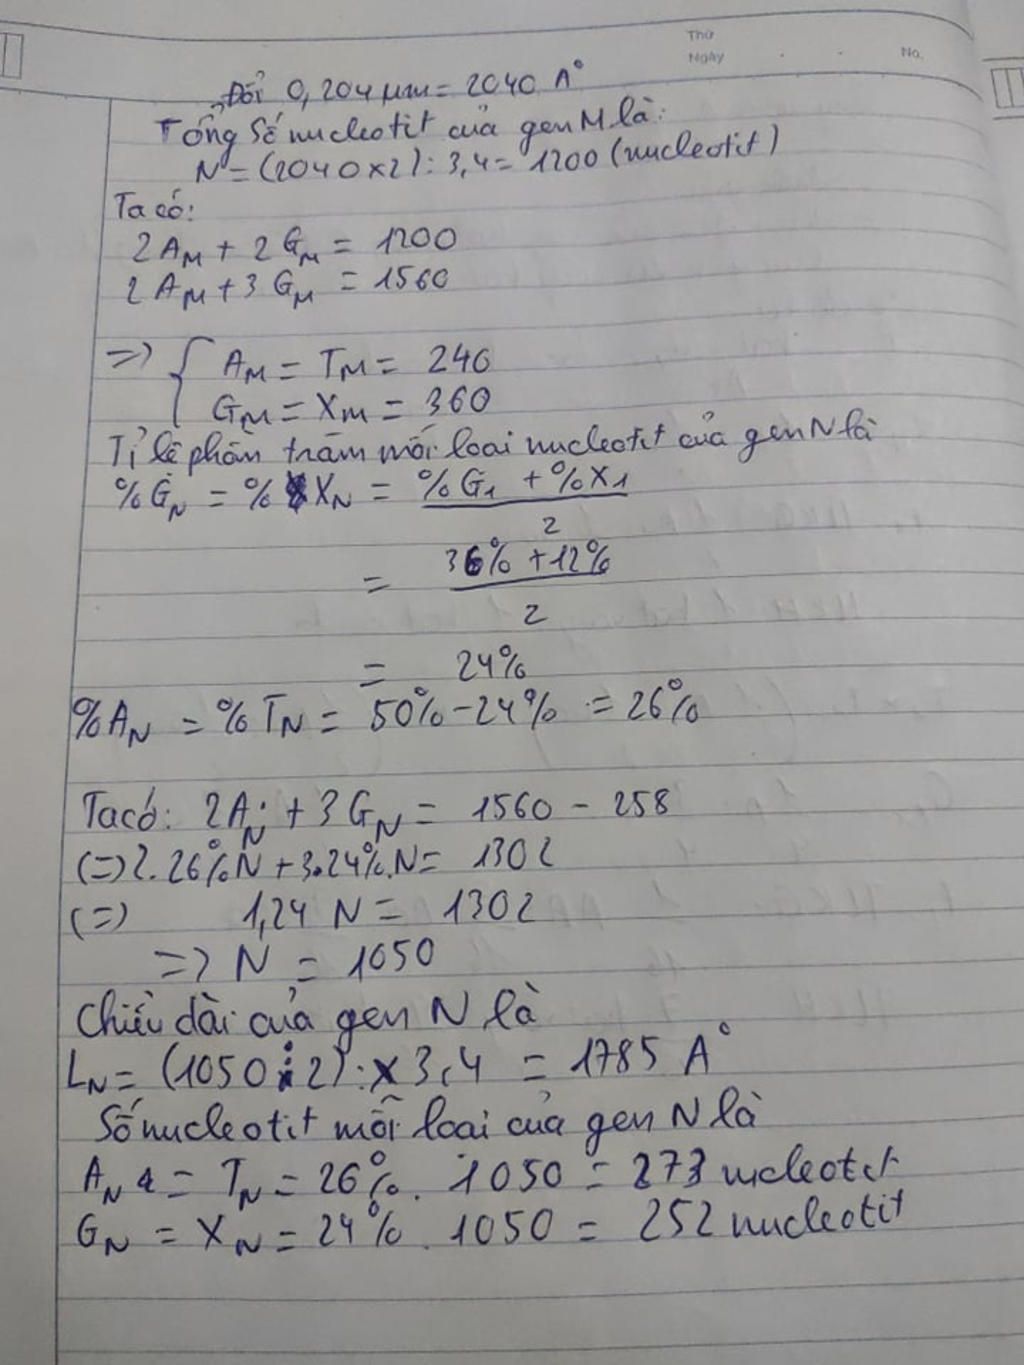 Thứ
Ngày
No.
Đổi 0,204 µm = 2040 A°
Tổng số nucleotit của gen M là:
N = (2040 x 2) : 3,4 = 1200 (nucleotit)
Ta có:
2AM + 2GM = 1200
2AM + 3GM = 1560
=> { AM = TM = 240
GM = XM = 360
Tỉ lệ phần trăm mỗi loại nucleotit của gen N là
%GN = %XN = %G1 + %X1
2
= 36% + 12%
2
= 24%
%AN = %TN = 50% - 24% = 26%
Ta có: 2AN + 3GN = 1560 - 258
(=) 2.26%N + 3.24%.N = 1302
(=) 1,24 N = 1302
=> N = 1050
Chiều dài của gen N là
LN = (1050 : 2) : x 3,4 = 1785 A°
Số nucleotit mỗi loại của gen N là
AN = TN = 26% . 1050 = 273 nucleotit
GN = XN = 24% . 1050 = 252 nucleotit